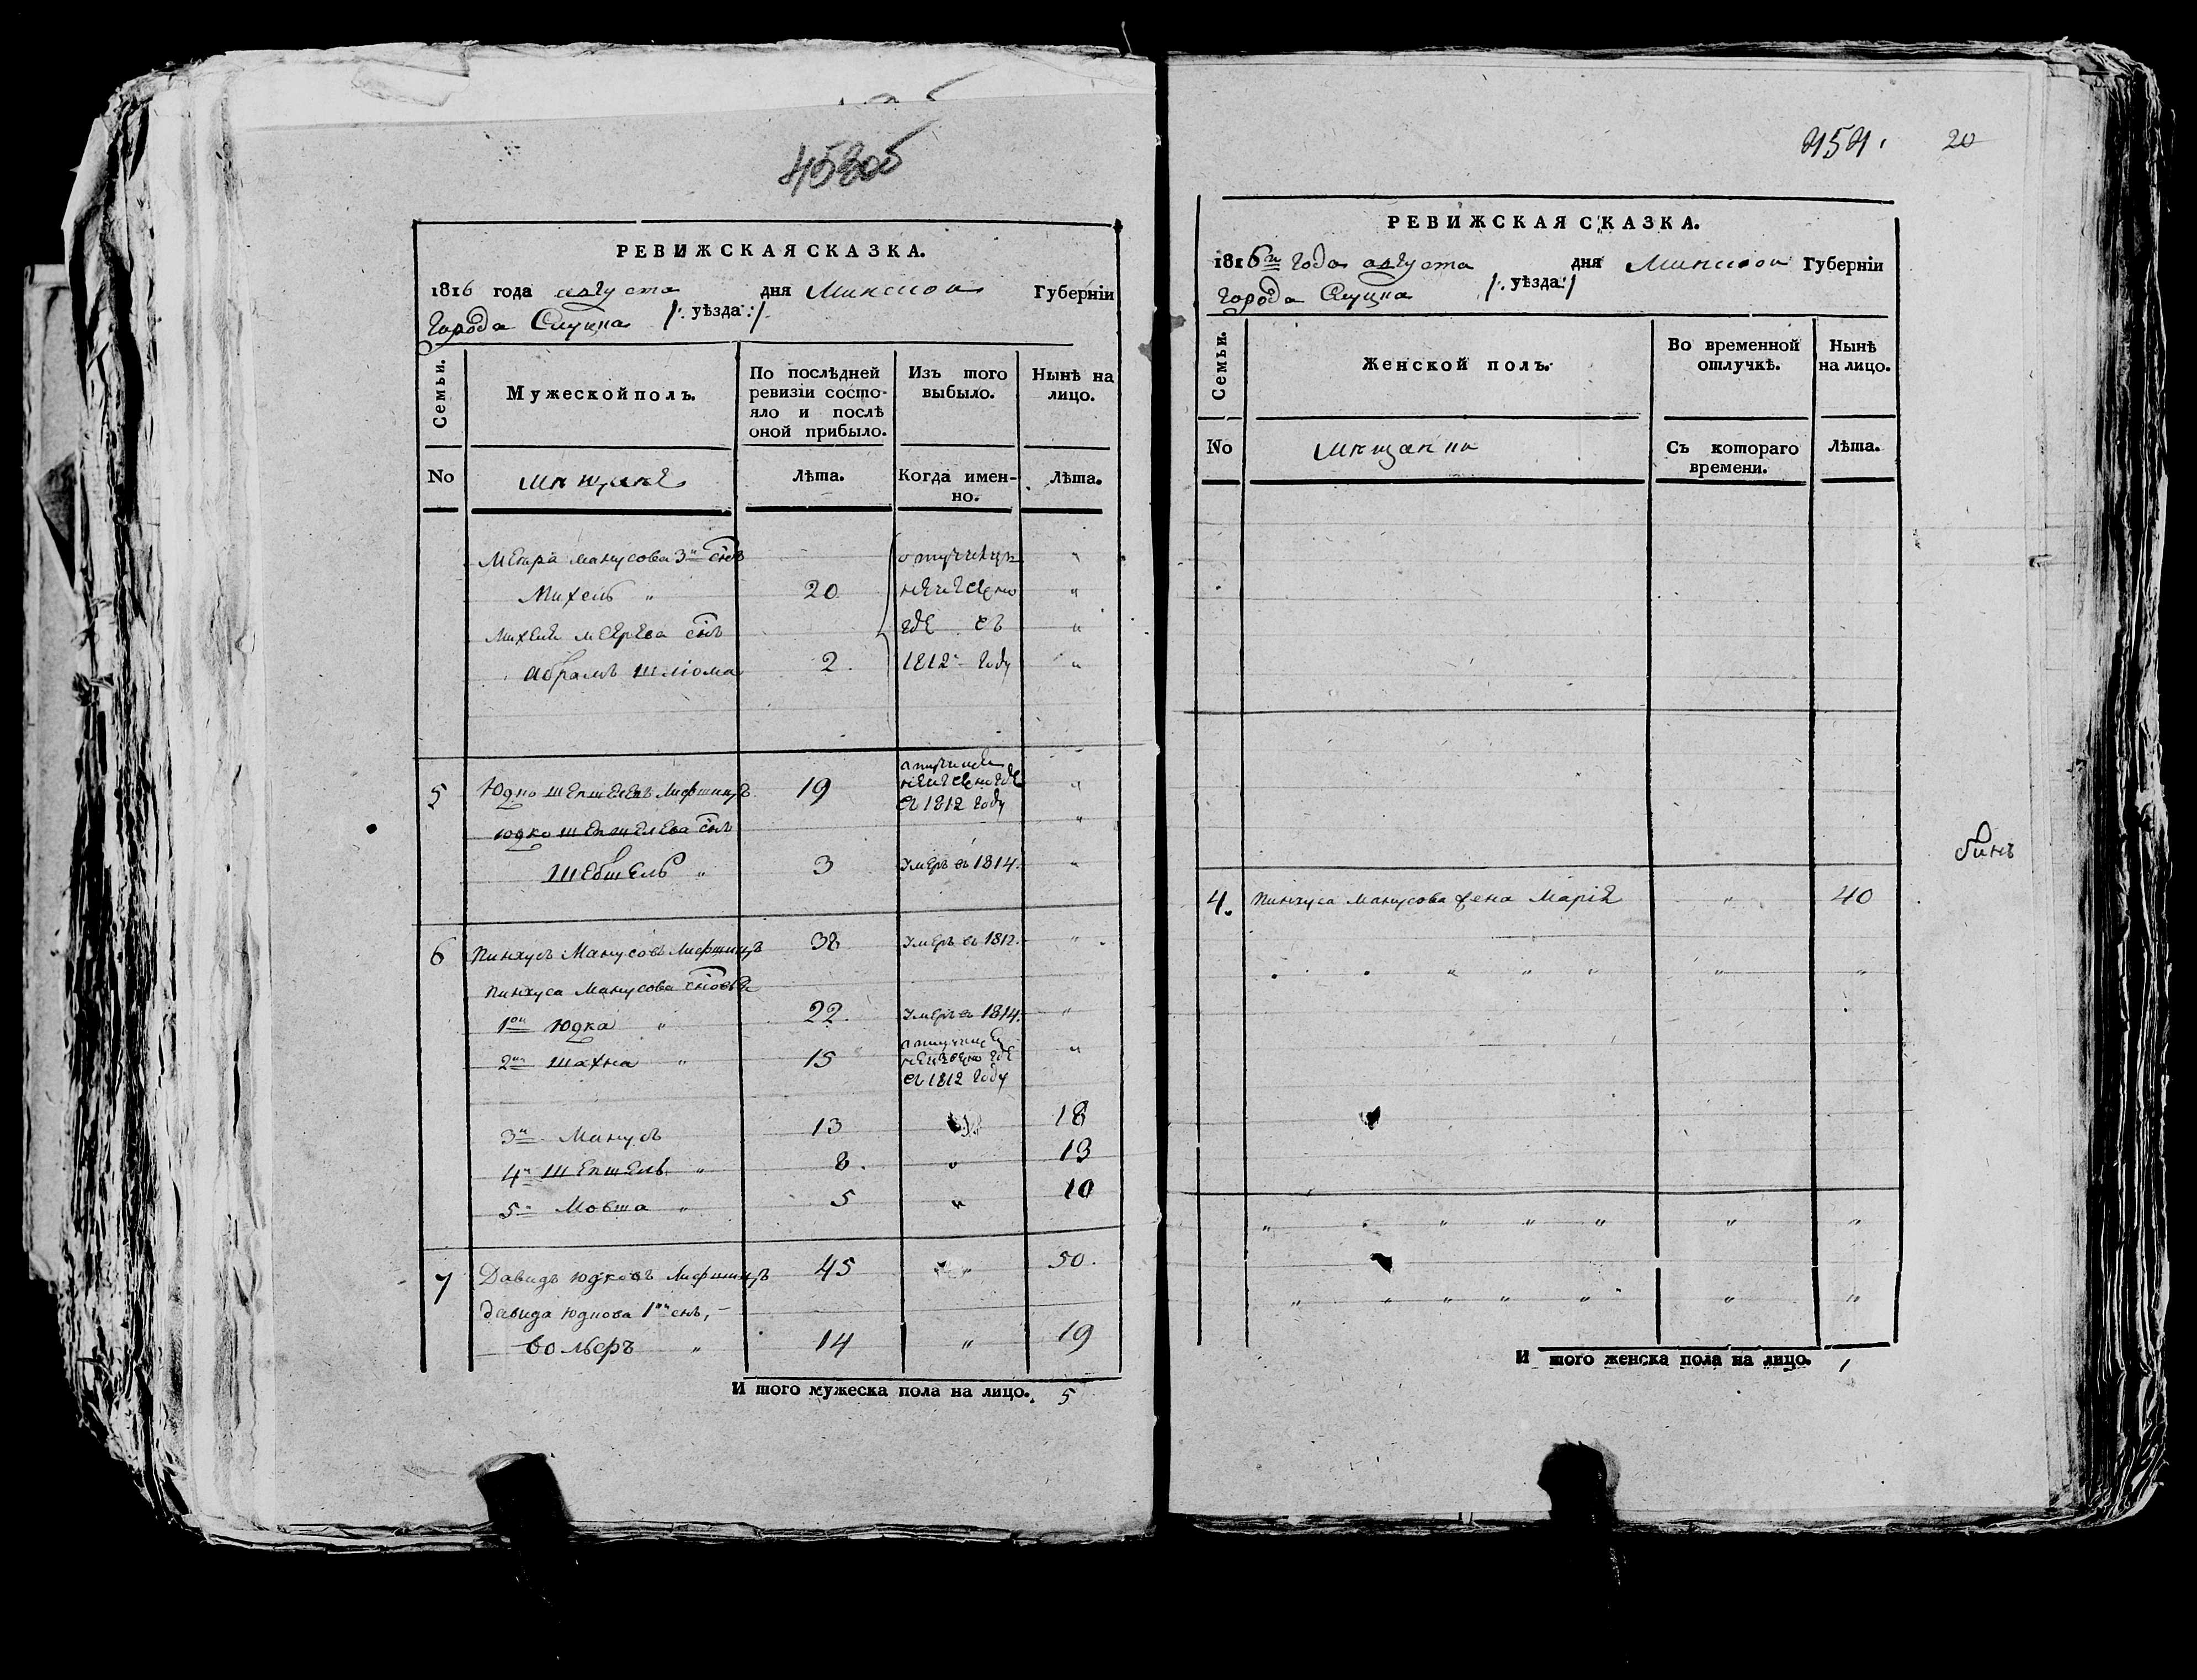 453об
РЕВИЖСКАЯ СКАЗКА.
1816 года августа дня Минской Губерніи
города Слуцка /: уѣзда :/
Семьи.
Мужеской полъ.
По послѣдней ревизіи состо-
яло и послѣ
оной прибыло.
Изъ того
выбыло.
Нынѣ на
лицо.
No
мѣщане
Лѣта.
Когда имен-
но.
Лѣта.
Меера манусова 3й снъ
Михель " 20
Михеля меерева снъ
абрамъ шліома 2.
отлучились
неизвесно
где въ
1812м году
5 Юдко шепшелевъ Лифшицъ 19
отлучился
неизвесно где
въ 1812 году
юдко шепшелева снъ
шебшель " 3 умеръ въ 1814.
6 Пинхусъ Манусовъ Лифшицъ 38 умеръ въ 1812.
Пинхуса Манусова сновья
1ой Юдка " 22. умеръ въ 1814.
2й шахна " 15
отлучился
неизвесно где
въ 1812 году
3й Манусъ 13 18
4й шепшель " 8. " 13
5й Мовша " 5 " 10
7 Давидъ юдковъ Лифшицъ 45 " 50.
давида юдкова 1ой снъ,
вольфъ " 14 " 19
И того мужеска пола на лицо. 5
454. 20
РЕВИЖСКАЯ СКАЗКА.
1816го года августа дня Минской Губерніи
города Слуцка /: уѣзда :/
Семьи.
Женской полъ.
Во временной
отлучкѣ.
Нынѣ
на лицо.
No
мѣщанки
Съ котораго
времени.
Лѣта.
4. Пинхуса Манусова жена Марія " 40
И того женска пола на лицо. 1